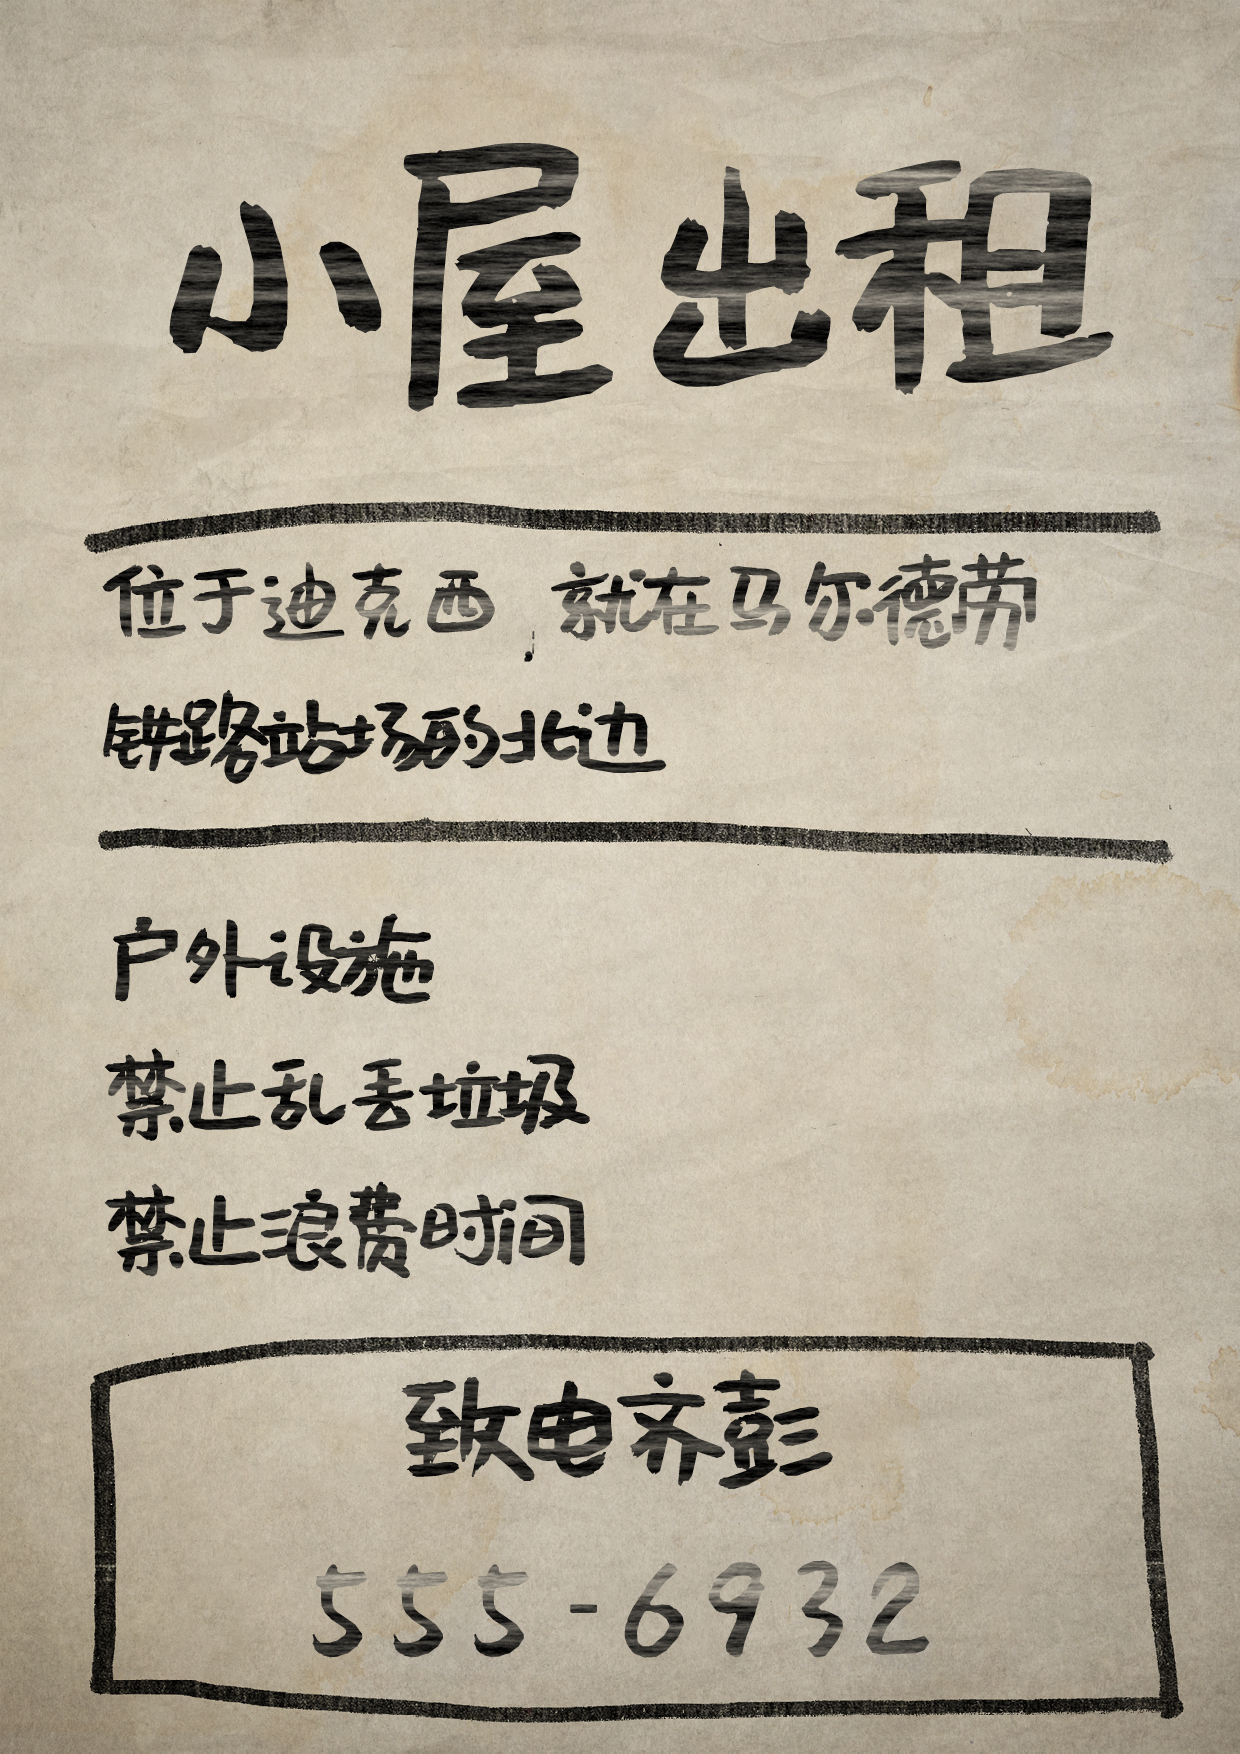 小屋出租
位于迪克西，就在马尔德劳
铁路站场的北边
户外设施
禁止乱丢垃圾
禁止浪费时间
致电齐彭
555-6932